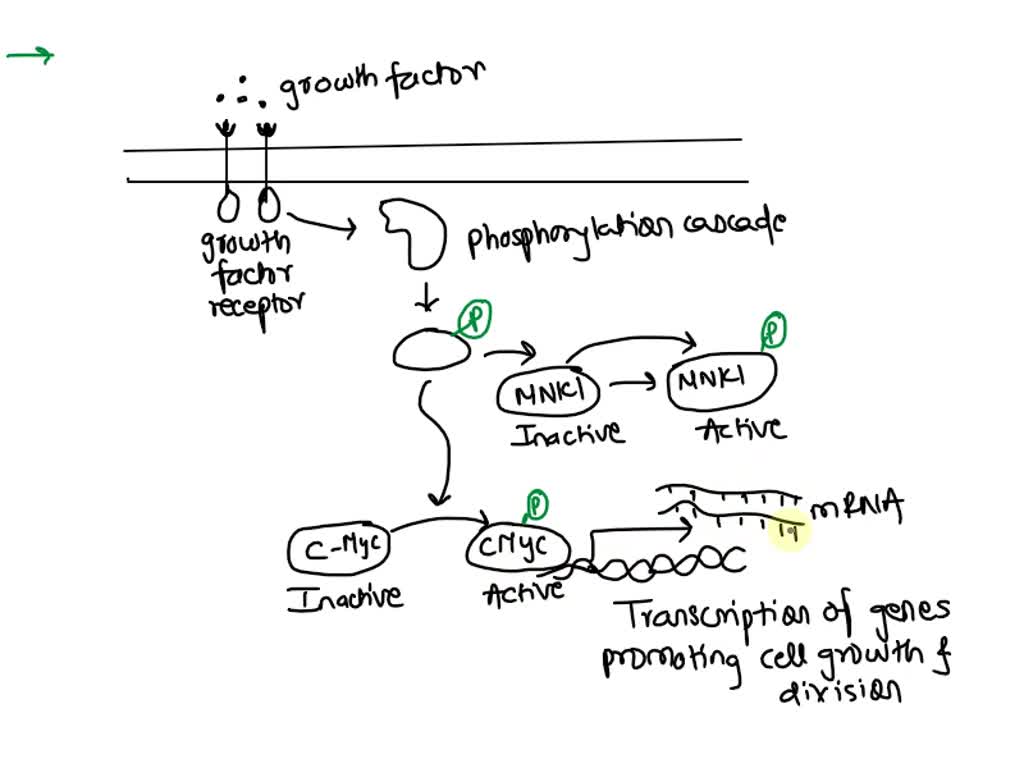 growth factor
growth
factor
receptor
phosphorylation cascade
P
P
MNK1
MNK1
Inactive
Active
P
mRNA
C-Myc
CMyc
Inactive
Active
Transcription of genes
promoting cell growth &
division